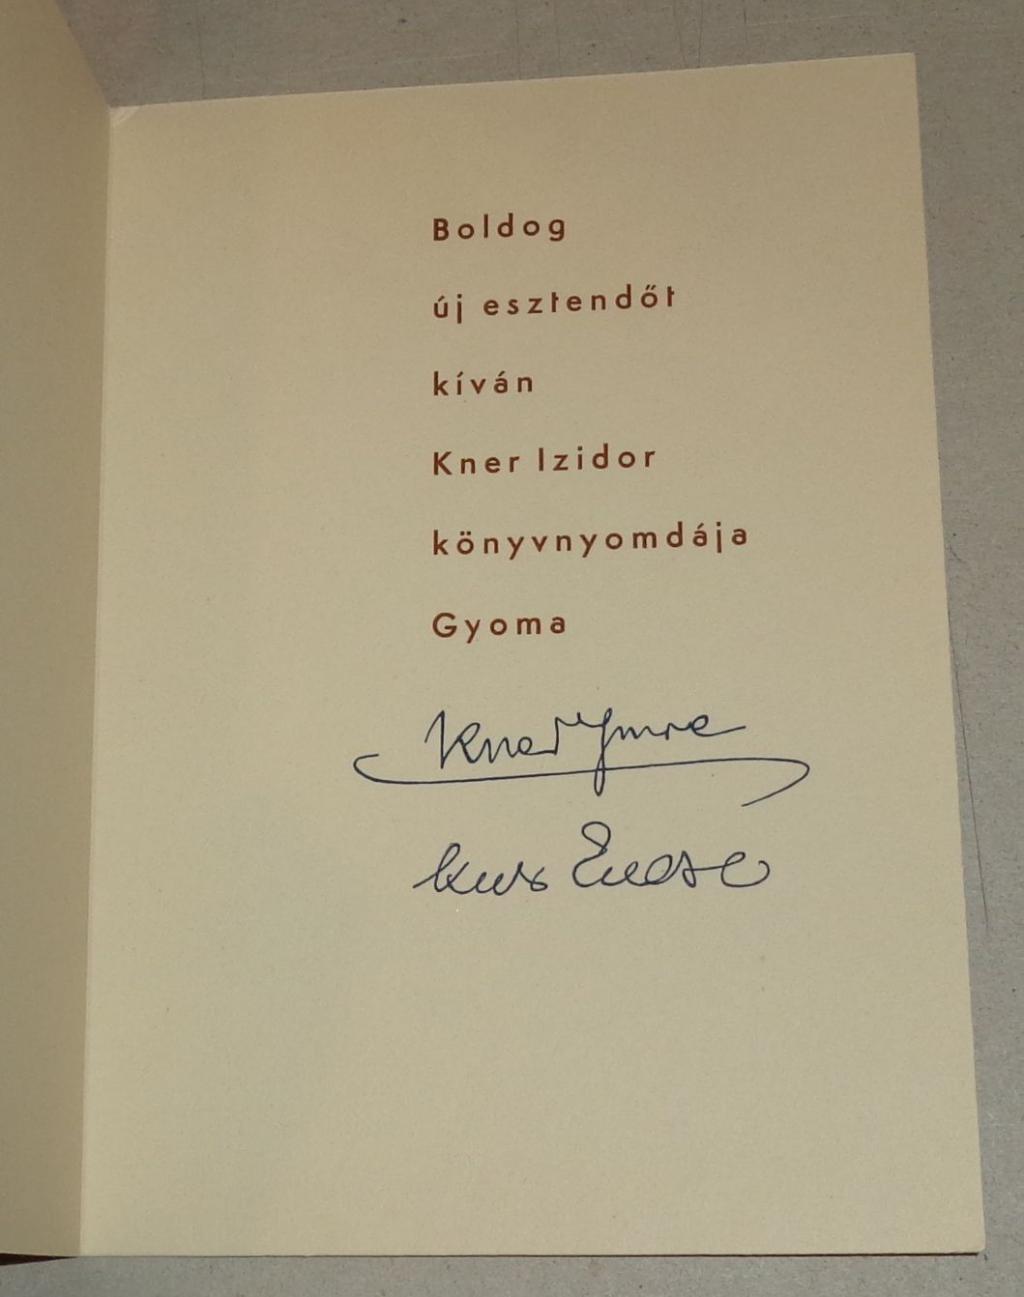 Boldog
új esztendőt
kíván
Kner Izidor
könyvnyomdája
Gyoma
Kner Ymre
Kner Endre